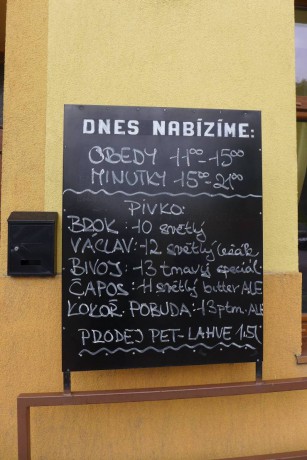 DNES NABÍZÍME:
OBEDY 11⁰⁰-15⁰⁰
MINUTKY 15⁰⁰-21⁰⁰
PIVKO:
BROK:10 světlý
VÁCLAV:12 světlý ležák
BIVOJ:13 tmavý speciál
ČAPOS:11 světlý butter ALE
KOKOŘ. POBUDA:13 ptm. ALE
PRODEJ PET-LAHVE 1.5l